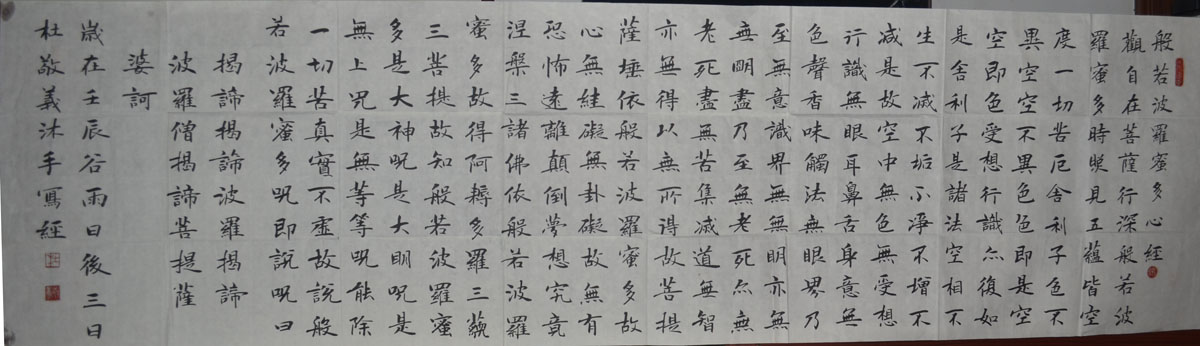 般若波羅蜜多心經
觀自在菩薩行深般若波
羅蜜多時照見五蘊皆空
度一切苦厄舍利子色不
異空空不異色色即是空
空即色受想行識亦復如
是舍利子是諸法空相不
生不滅不垢不淨不增不
减是故空中無色無受想
行識無眼耳鼻舌身意無
色聲香味觸法無眼界乃
至無意識界無無明亦無
無明盡乃至無老死亦無
老死盡無苦集滅道無智
亦無得以無所得故菩提
薩埵依般若波羅蜜多故
心無絓礙無卦礙故無有
恐怖遠離顛倒夢想究竟
涅槃三諸佛依般若波羅
蜜多故得阿耨多羅三藐
三菩提故知般若波羅蜜
多是大神呪是大明呪是
無上呪是無等等呪能除
一切苦真實不虛故説般
若波羅蜜多呪即説呪曰
揭諦揭諦波羅揭諦
波羅僧揭諦菩提薩
婆訶
歲在壬辰谷雨日後三日
杜敬義沐手寫經